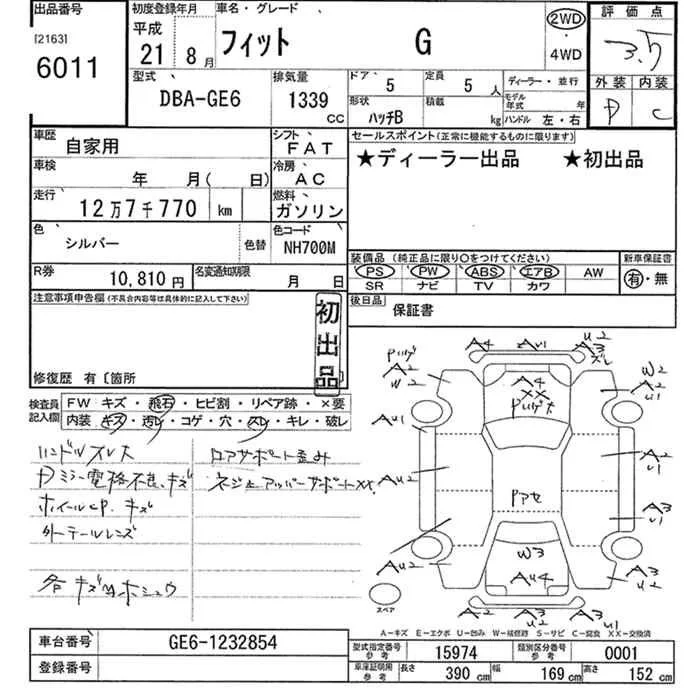 出品番号
[2163]
6011
初度登録年月
平成
21 8月
車名・グレード
フィット G
2WD
・
4WD
評価点
3.5
外装 内装
D C
型式
DBA-GE6
排気量
1339
CC
ドア 5
定員 5人
形状 ハッチB
積載 kg
ディーラー・並行
モデル年式 年
ハンドル 左・右
車歴 自家用
シフト FAT
車検 年 月( 日)
冷房 AC
走行 12万7千770 km
燃料 ガソリン
色 シルバー 色替
色コード NH700M
R券 10,810円
名変通知期限 月 日
セールスポイント(正常に機能するものに限ります)
★ディーラー出品 ★初出品
装備品(純正品に限り○をつけてください)
新車保証書
PS PW ABS エアB AW
SR ナビ TV カワ
有・無
後日品 保証書
注意事項申告欄(不具合内容等は具体的に記入して下さい)
初出品
修復歴 有〔箇所
検査員記入欄
FW キズ・飛石・ヒビ割・リペア跡・×要
内装 キズ・汚レ・コゲ・穴・スレ・キレ・破レ
ハンドルスレ
Dミラー電格不良、キズ
ホイールCP. キズ
外テールレンズ
各キズ凹ホシュウ
ロアサポート歪み
ネジ止アッパーサポートXX
A4 AU1 U2
A3
A2
W2
A4
XX
W2
A2
U1
AU1
A2
U1
AU2
Pアセ
A3
U1
W3
AU2
AU4
A3
U2
スペア
A2 A3 U1
U2
A-キズ E-エクボ U-凹み W-補修跡 S-サビ C-腐食 XX-交換済
車台番号 GE6-1232854
登録番号
型式指定番号 参考 15974
類別区分番号 参考 0001
車庫証明用 参考 長さ 390 cm 幅 169 cm 高さ 152 cm